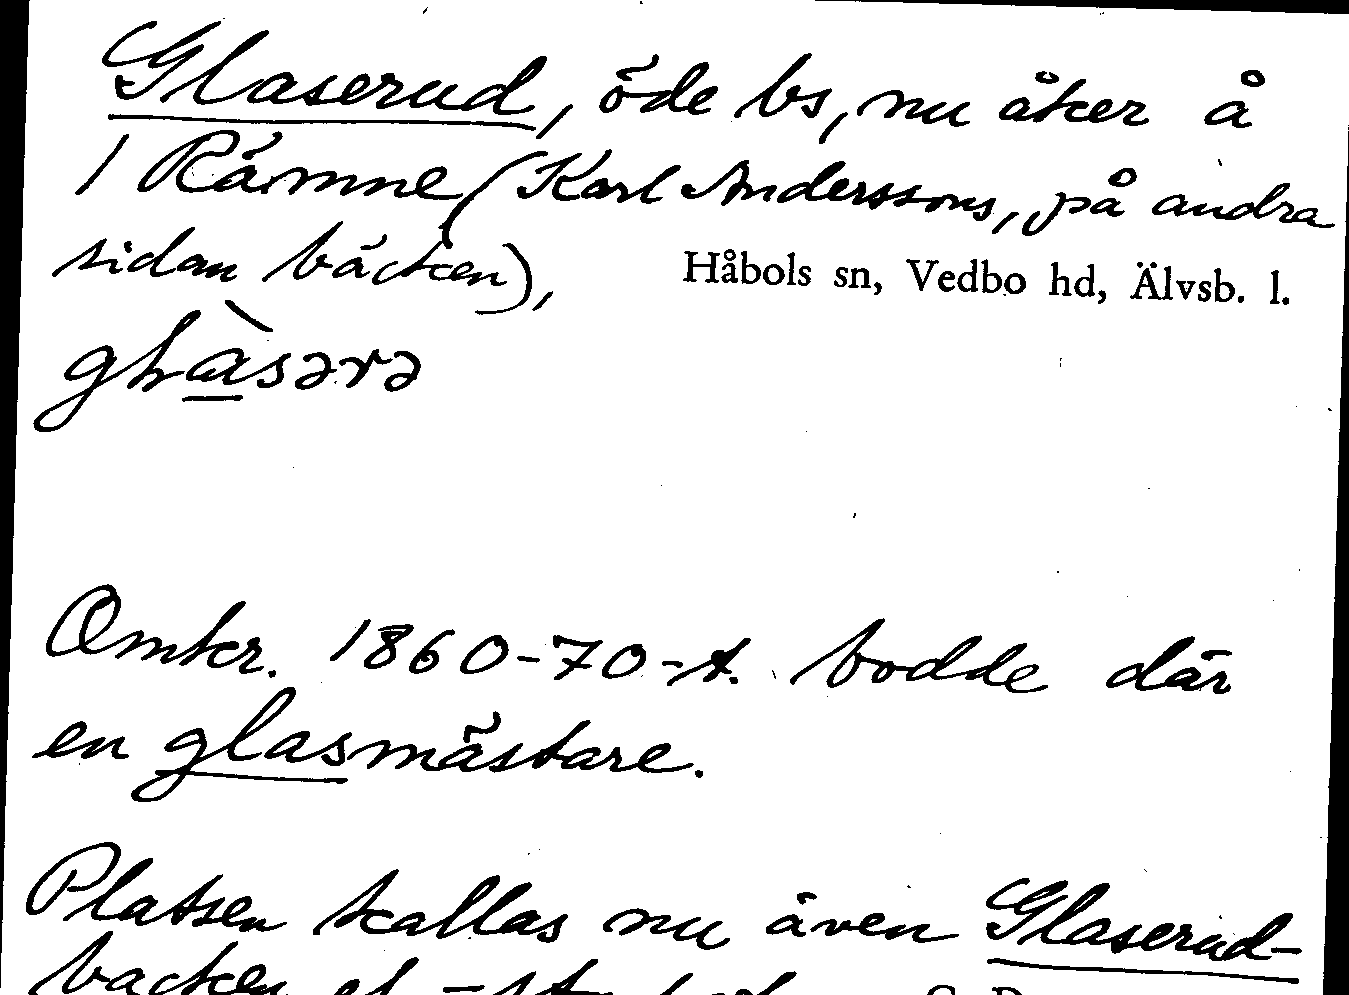 Glaserud, öde bs, nu åker å
1 Rämne (Karl Anderssons, på andra
sidan bäcken),
Håbols sn, Vedbo hd, Älvsb. l.
Omkr. 1860-70-t. bodde där
en glasmästare.
Platsen kallas nu även Glaserud-
backen el.